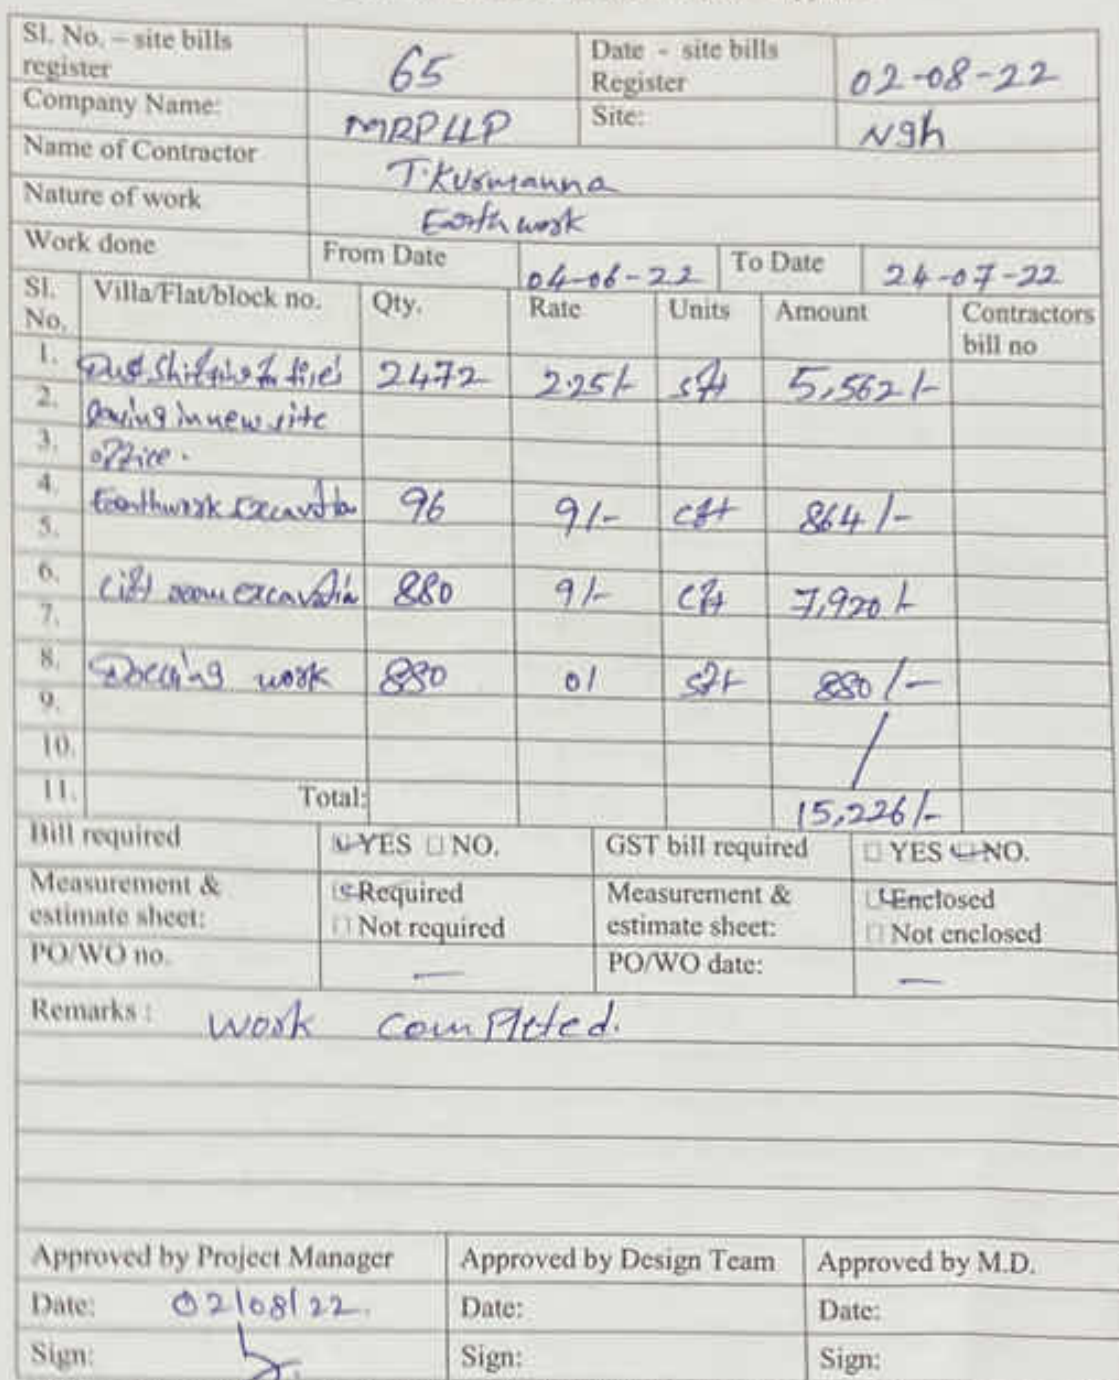 Sl. No. – site bills register 65 Date - site bills Register 02-08-22
Company Name: MRPLLP Site: Ngh
Name of Contractor T.Kurmanna
Nature of work Earth work
Work done From Date 04-06-22 To Date 24-07-22
Sl. No. Villa/Flat/block no. Qty. Rate Units Amount Contractors bill no
1. Dust Shifting 2472 2.25/- sft 5,562/-
2. in new site
3. office.
4. Earthwork Excavation 96 9/- cft 864/-
5.
6. Lift room excavation 880 9/- cft 7,920/-
7.
8. work 880 01 sft 880/-
9.
10.
11. Total: 15,226/-
Bill required YES NO. GST bill required YES NO.
Measurement & estimate sheet: Required Not required Measurement & estimate sheet: Enclosed Not enclosed
PO/WO no. — PO/WO date: —
Remarks : Work Completed.
Approved by Project Manager Approved by Design Team Approved by M.D.
Date: 02/08/22. Date: Date:
Sign: Sign: Sign: